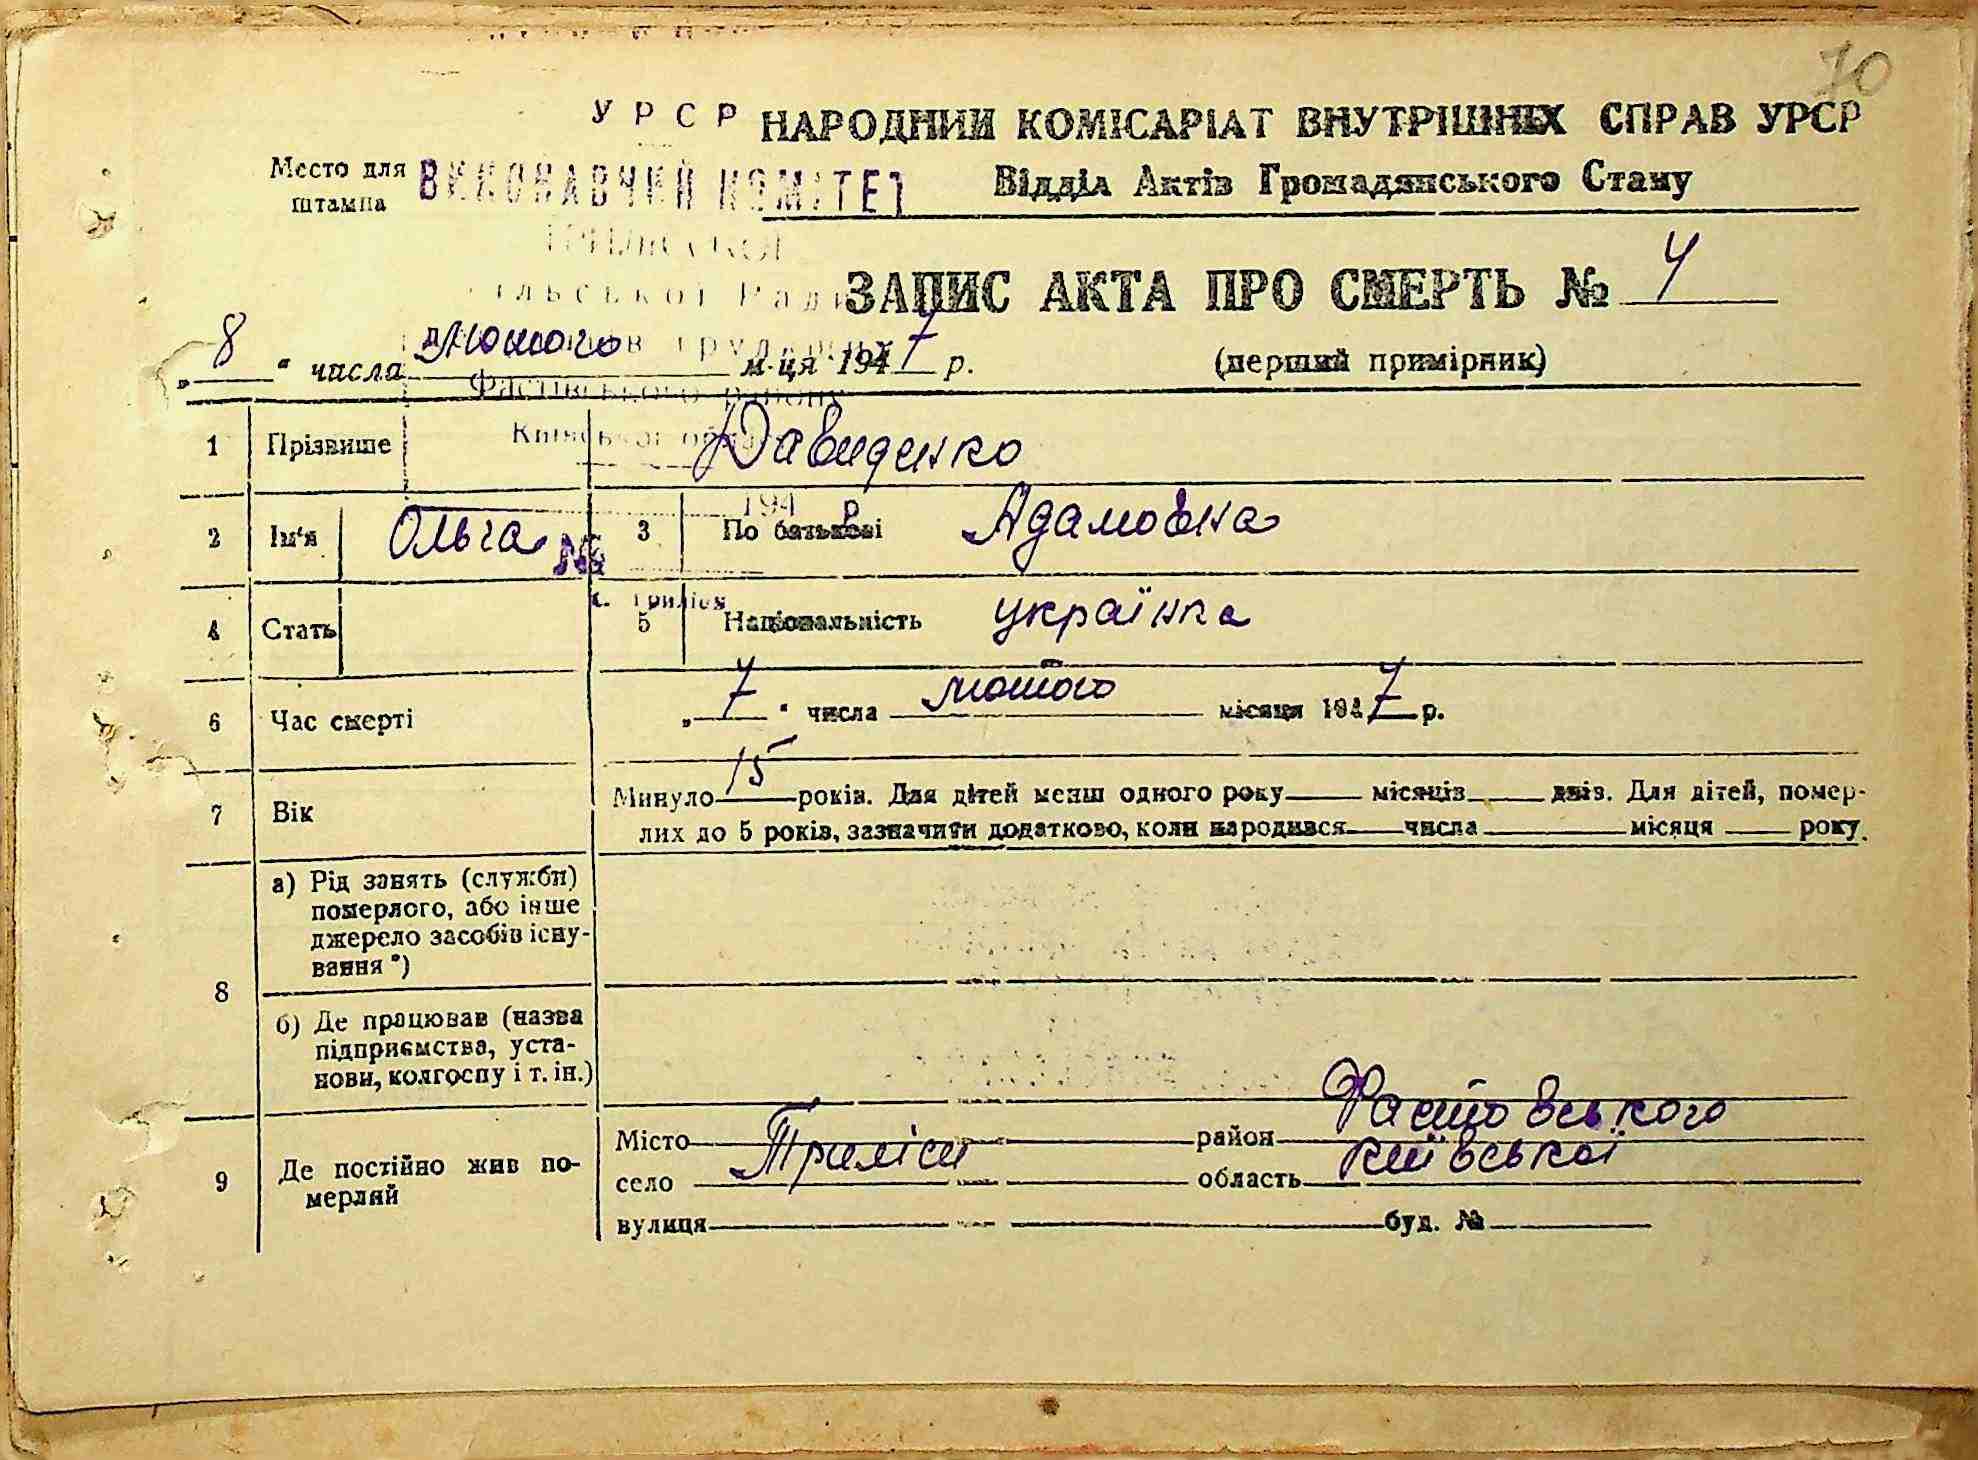 70
УРСР
НАРОДНИЙ КОМІСАРІАТ ВНУТРІШНІХ СПРАВ УРСР
Место для штампа
ВИКОНАВЧИЙ КОМІТЕТ
Відділ Актів Громадянського Стану
сільської Ради
ЗАПИС АКТА ПРО СМЕРТЬ № 4
„8“ числа лютого м-ця 1947 р.
(перший примірник)
Фастівського району
Київської області
1 Прізвище Давиденко
194 р
2 Ім'я Ольга 3 По батькові Адамовна
№
с. Триліси
4 Стать 5 Національність українка
6 Час смерті „7“ числа лютого місяця 1947 р.
7 Вік Минуло 15 років. Для дітей менш одного року місяців днів. Для дітей, помер-
лих до 5 років, зазначити додатково, коли народився числа місяця року.
8 а) Рід занять (служби)
померлого, або інше
джерело засобів існу-
вання *)
б) Де працював (назва
підприємства, уста-
нови, колгоспу і т. ін.)
9 Де постійно жив по-
мерлий
Місто район Фастовського
село Триліси область київської
вулиця буд. №